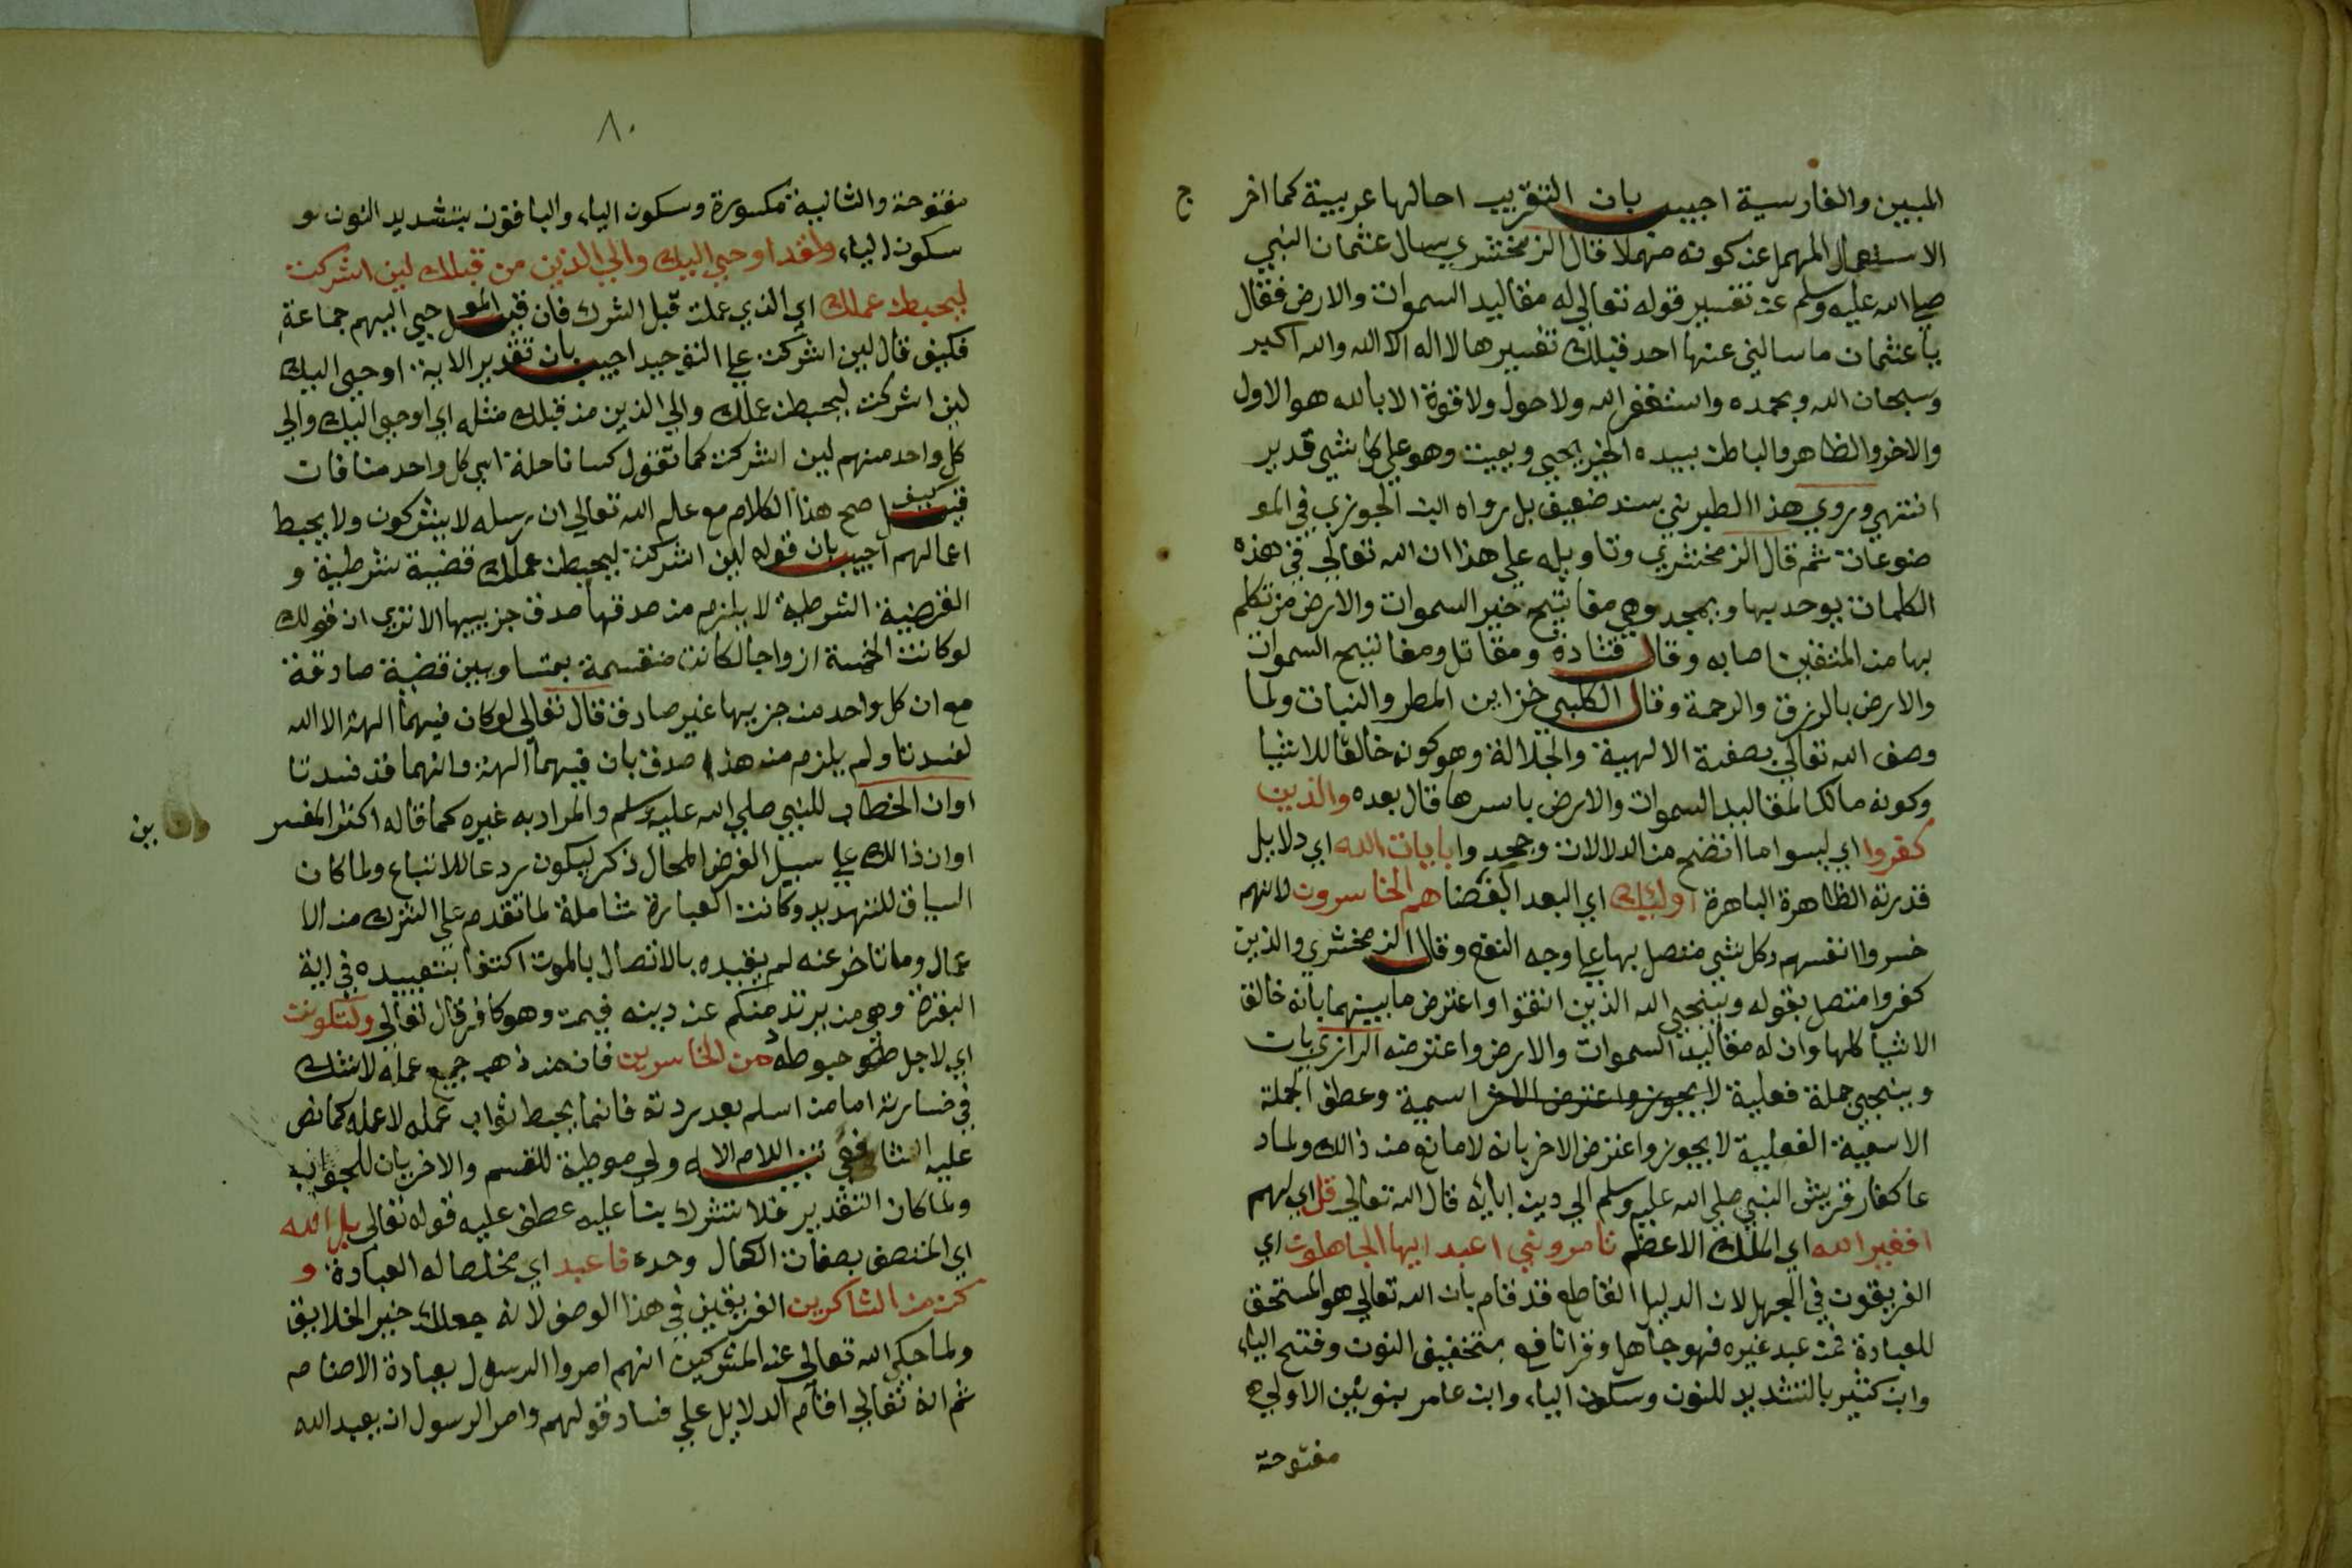 المبين والفارسية اجيب بان التقريب احالها عربية كما اخر ج
الاستعمال المهمل عن كونه مهملا قال الزمخشري سال عثمان النبي
صلي الله عليه وسلم عن تفسير قوله تعالي له مقاليد السموات والارض فقال
ياعثمان ماسالني عنها احد قبلك تفسيرها لا اله الا الله والله اكبر
وسبحان الله وبحمده واستغفر الله ولاحول ولاقوة الا بالله هو الاول
والاخر والظاهر والباطن بيده الخير يحيي ويميت وهو علي كل شي قدير
انتهي وروي هذا الطبرني بسند ضعيف بل رواه ابن الجوزي في المو
ضوعات ثم قال الزمخشري وتاويله علي هذا ان الله تعالي في هذه
الكلمات يوحد بها ويمجد وهي مفاتيح خير السموات والارض من تكلم
بها من المتقين اصابه وقال قتادة ومقاتل ومفاتيح السموات
والارض بالرزق والرحمة وقال الكلبي خزاين المطر والنبات ولما
وصف الله تعالي بصفة الالهية والجلالة وهو كونه خالقا للاشيا
وكونه مالكا لمقاليد السموات والارض باسرها قال بعده والذين
كفروا اي لبسوا ما اتضح من الدلالات وجحدوا بايات الله اي دلايل
قدرته الظاهرة الباهرة اوليك اي البعد البغضا هم الخاسرون لانهم
خسروا انفسهم وكل شي متصل بها علي وجه النفع وقال الزمخشري والذين
كفروا متصل بقوله وينجي الله الذين اتقوا واعترض مابينهما بانه خالق
الاشيا كلها وان له مقاليد السموات والارض واعترضه الرازي بان
وينجي جملة فعلية لا يجوز واعترض الاخر اسمية وعطف الجملة
الاسمية الفعلية لا يجوز واعترض الاخر بانه لامانع من ذالك ولما د
عا كفار قريش النبي صلي الله عليه وسلم الي دين ابايه قال الله تعالي قل اي لهم
افغير الله اي الملك الاعظم تامروني اعبد ايها الجاهلون اي
الفريقون في الجهل لان الدليل القاطع قد قام بان الله تعالي هو المستحق
للعبادة فمن عبد غيره فهو جاهل وقرا نافع بتخفيف النون وفتح الياء
وابن كثير بالتشديد للنون وسكون الياء وابن عامر بنونين الاولي
مفتوحة
٨٠
مفتوحة والثانية مكسورة وسكون الياء والباقون بتشديد النون و
سكون الياء ولقد اوحي اليك والي الذين من قبلك لين اشركت
ليحبطن عملك اي الذي عملت قبل الشرك فان قيل الموحي اليهم جماعة
فكيف قال لين اشركت علي التوحيد اجيب بان تقدير الاية اوحي اليك
لين اشركت ليحبطن عملك والي الذين من قبلك مثله اي اوحي اليك والي
كل واحد منهم لين اشركت كما تقول كسانا حلة اي كل واحد منا فان
قيل كيف صح هذا الكلام مع علم الله تعالي ان رسله لا يشركون ولا يحبط
اعمالهم اجيب بان قوله لين اشركت ليحبطن عملك قضية شرطية و
القضية الشرطية لا يلزم من صدقها صدق جزييها الا تري ان قولك
لو كانت الخمسة ازواجا لكانت منقسمة بمتساويين قضية صادقة
مع ان كل واحد من جزييها غير صادق قال تعالي لو كان فيهما الهة الا الله
لفسدتا ولم يلزم من هذا صدق بان فيهما الهة وانهما قد فسدتا
اوان الخطاب للنبي صلي الله عليه وسلم والمراد به غيره كما قاله اكثر المفسر
ين
اوان ذالك علي سبيل الفرض المحال ذكر ليكون ردعا للاتباع ولما كان
السياق للتهديد وكانت العبارة شاملة لما تقدم علي الشرك من الا
عمال وما تاخر عنه لم يقيده بالاتصال بالموت اكتفا بتقييده في اية
البقرة وهي من يرتد منكم عن دينه فيمت وهو كافر قال تعالي ولتكونن
اي لاجل حبوطه من الخاسرين فان من ذهب جميع عمله لاشك
في خسارته اما من اسلم بعد ردته فانما يحبط ثواب عمله لاعمله كما نص
عليه الشافعي تنبيه اللام الاولي موطية للقسم والاخريان للجواب
ولما كان التقدير فلا تشرك بنا عليه عطف عليه قوله تعالي بل الله
اي المتصف بصفات الكمال وحده فاعبد اي مخلصا له العبادة و
كن من الشاكرين الفريقين في هذا الوصف لانه جعلك خير الخلايق
ولما حكي الله تعالي عن المشركين انهم امروا الرسول بعبادة الاصنام
ثم انه تعالي اقام الدلايل علي فساد قولهم وامر الرسول ان يعبد الله